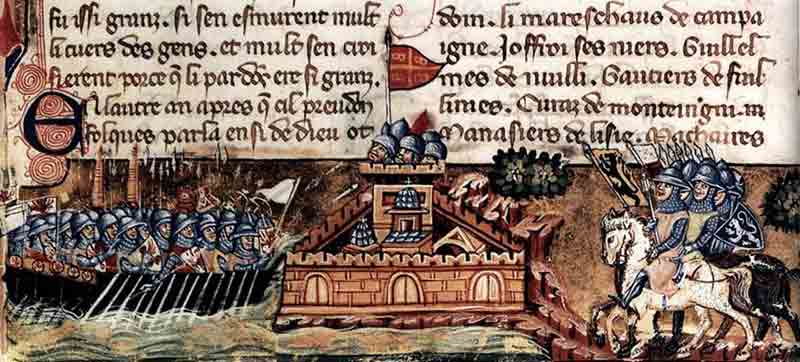 fu issi granz. si sen esmurent mult
li cuers des gens. et mult sen croi
sierent porce q̃ li pardõs ere si granz.
El autre an apres que cil preudon
folques parla ensi de dieu ot
doin. li mareschaus de campa
igne. Joffroi ses niers. Guillel
mes de nuilli. Gautiers de fuil
limes. Euraz de monteingni.
Manasiers de lisle. Machaires